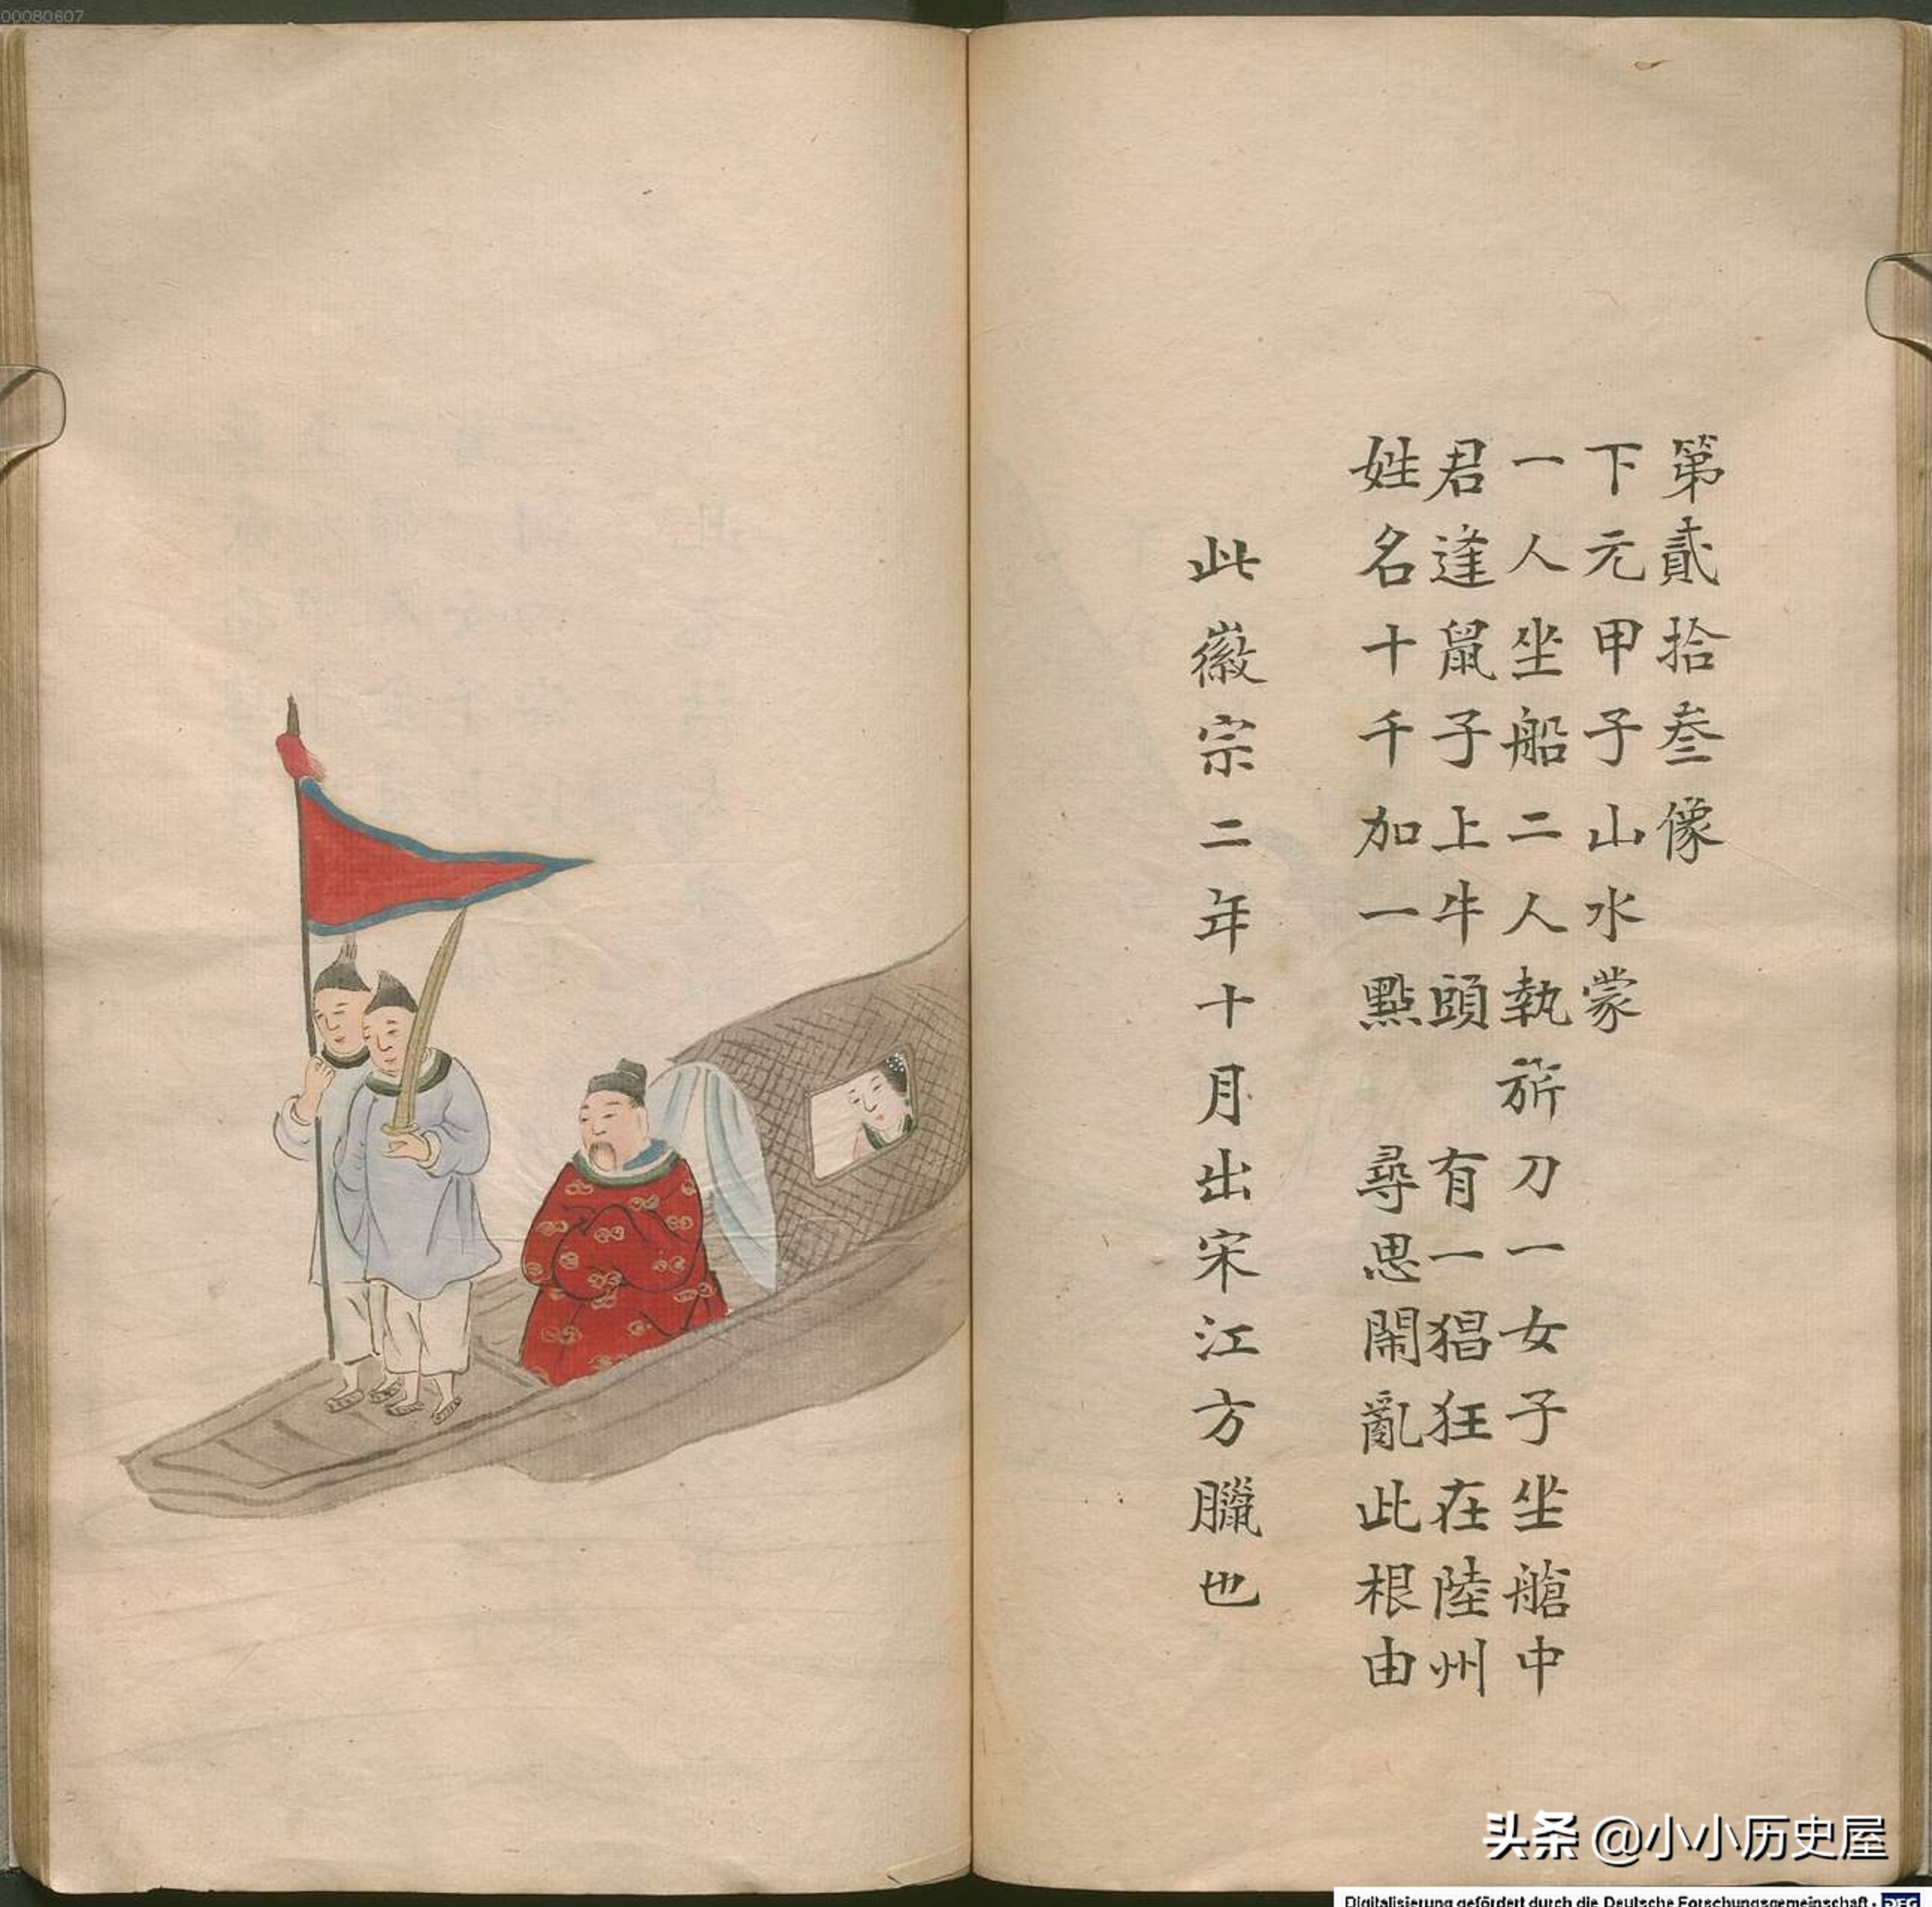 00080607
第貳拾叁像
下元甲子山水蒙
一人坐船二人執旂刀一女子坐艙中
君逢鼠子上牛頭 有一猖狂在陸州
姓名十千加一點 尋思鬧亂此根由
此徽宗二年十月出宋江方臘也
头条 @小小历史屋
Digitalisierung gefördert durch die Deutsche Forschungsgemeinschaft · DFG